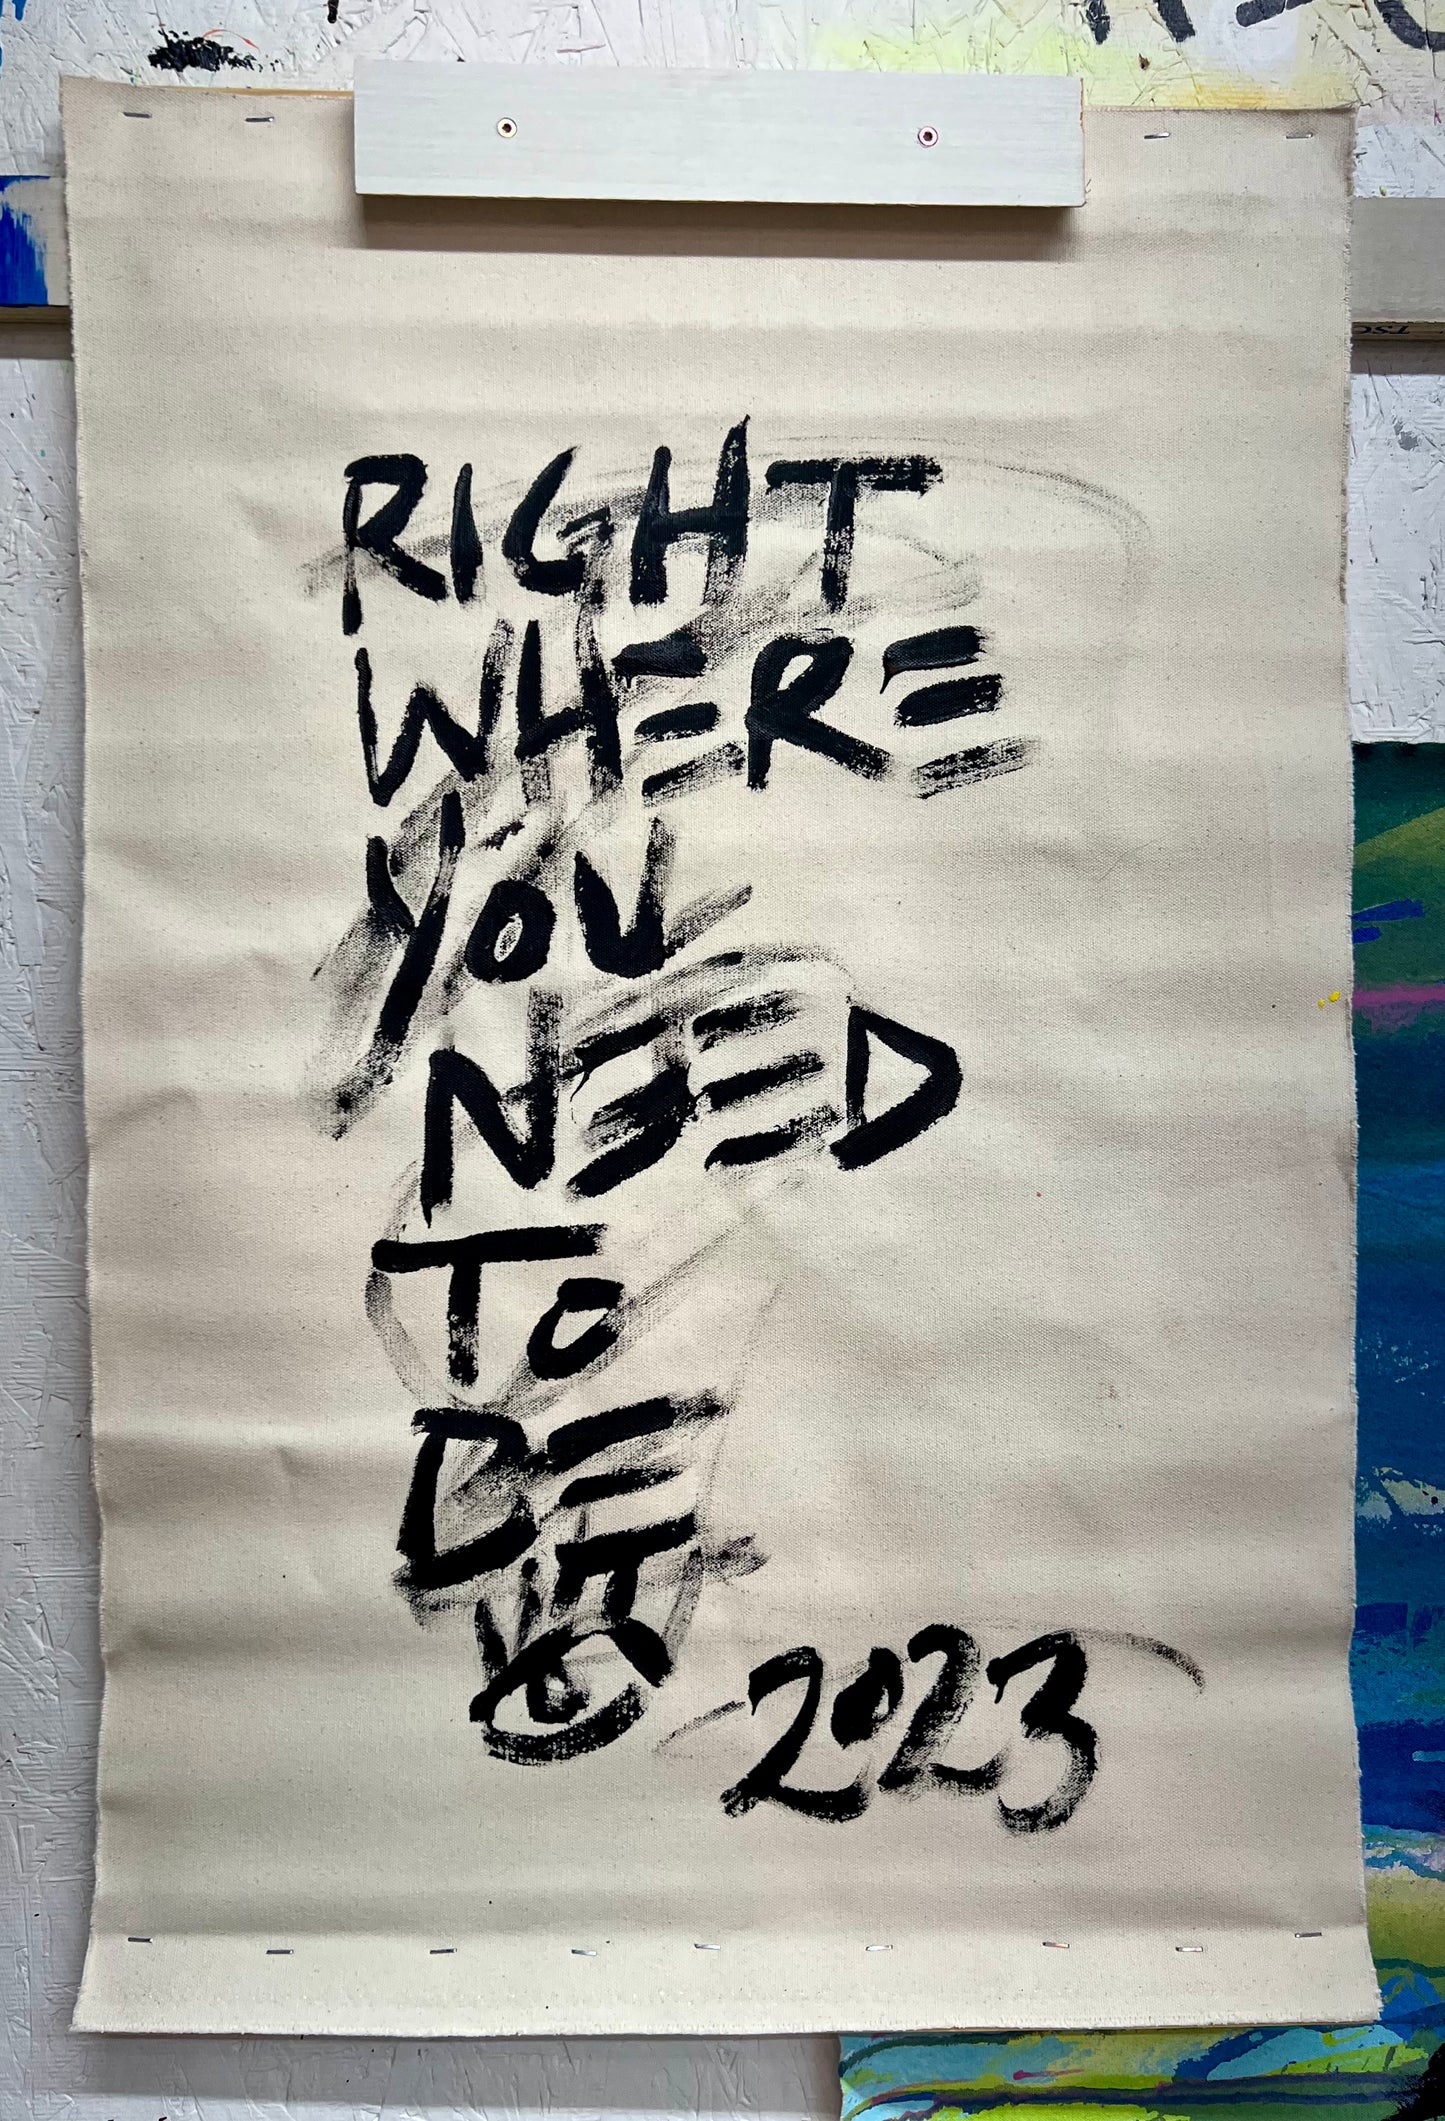 RIGHT
WHERE
YOU
NEED
TO
BE
2023